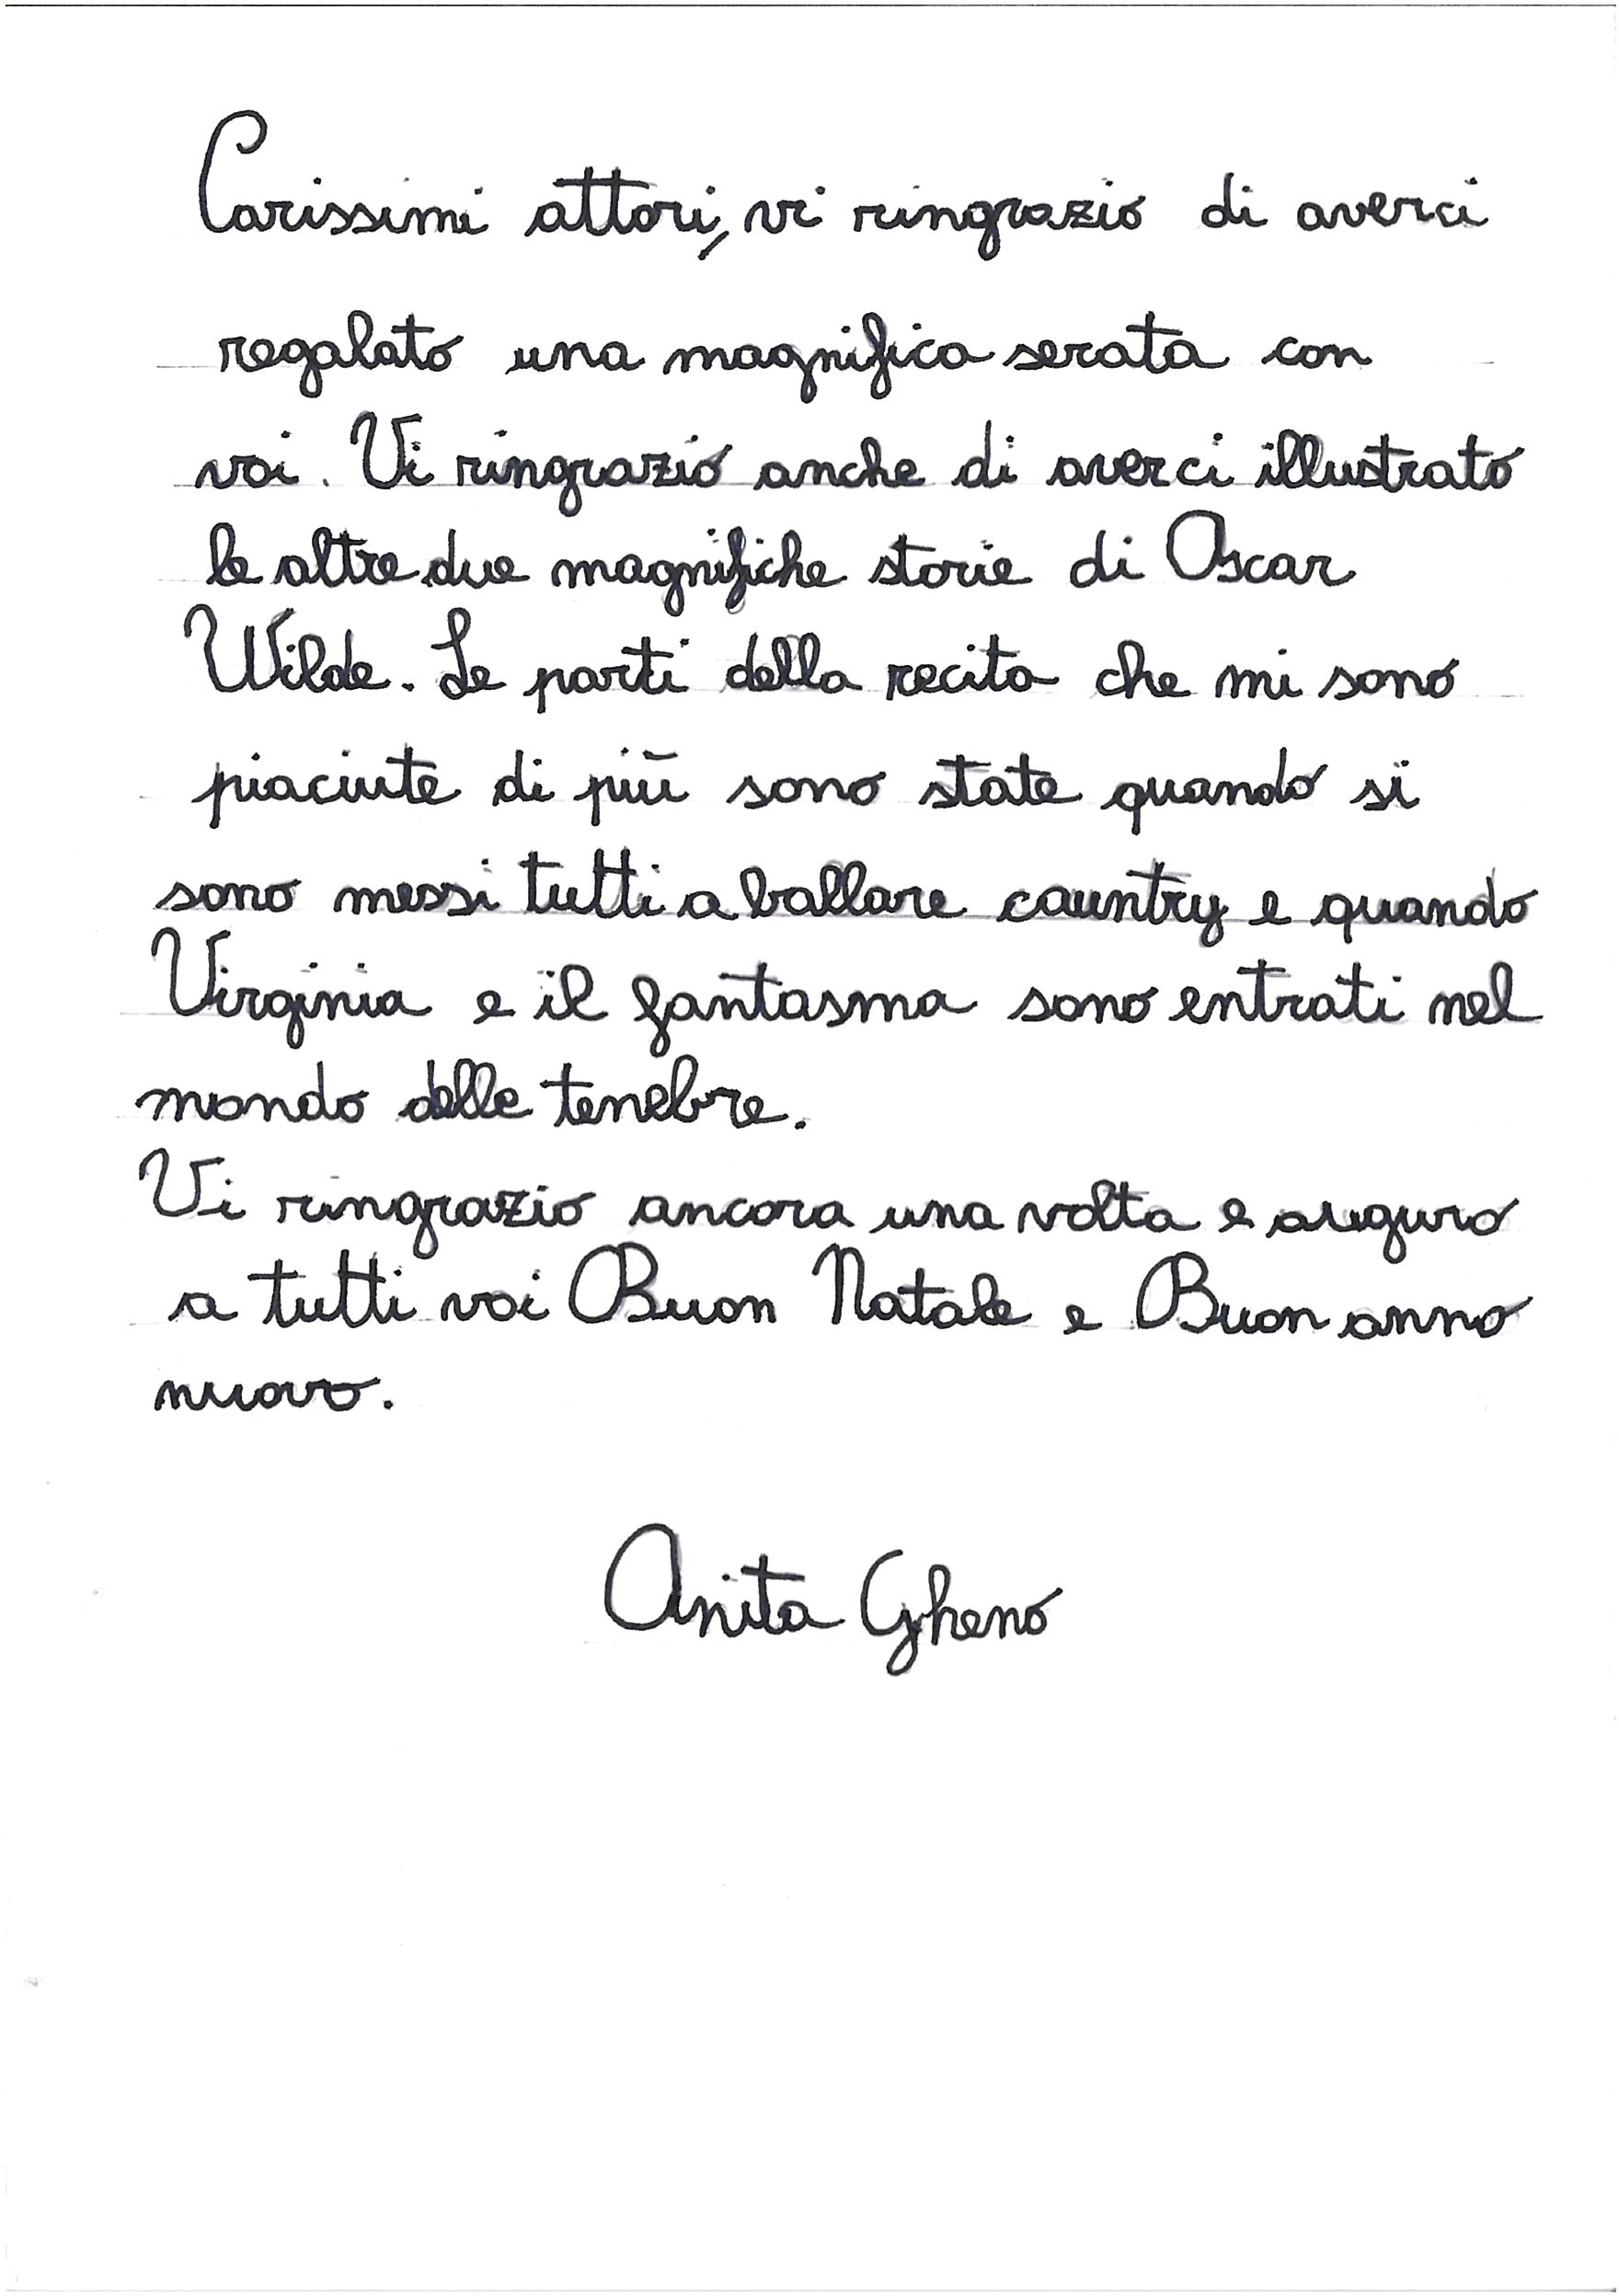 Carissimi attori, vi ringrazio di averci
regalato una magnifica serata con
voi. Vi ringrazio anche di averci illustrato
le altre due magnifiche storie di Oscar
Wilde. Le parti della recita che mi sono
piaciute di più sono state quando si
sono messi tutti a ballare cauntry e quando
Virginia e il fantasma sono entrati nel
mondo delle tenebre.
Vi ringrazio ancora una volta e auguro
a tutti voi Buon Natale e Buon anno
nuovo.
Anita Gheno